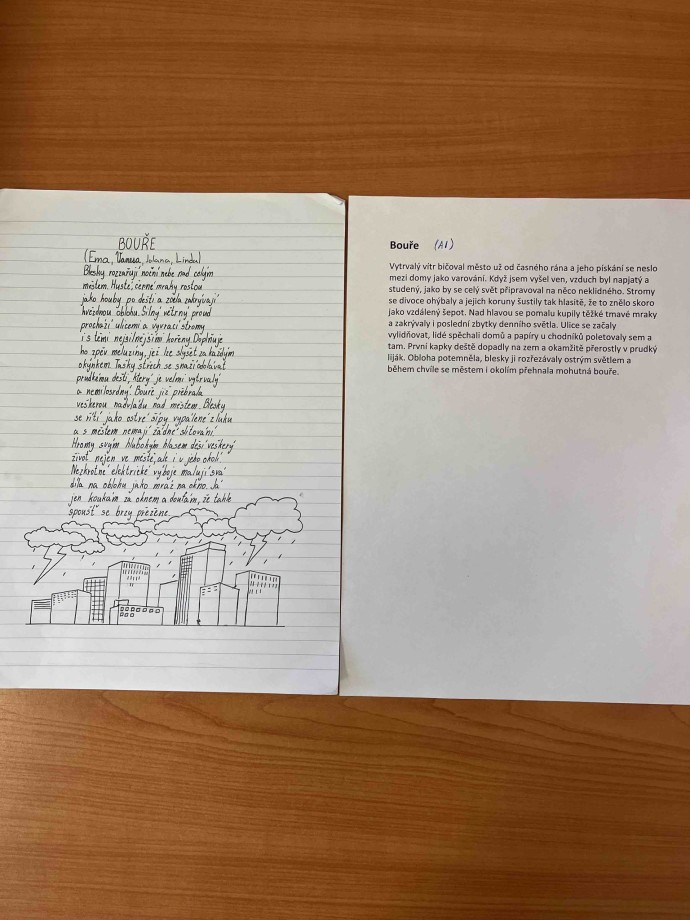 BOUŘE
(Ema, Vanesa, Jolana, Linda)
Blesky rozzařují noční nebe nad celým
městem. Husté, černé mraky rostou
jako houby po dešti a zcela zakrývají
hvězdnou oblohu. Silný větrný proud
prochází ulicemi a vyvrací stromy
i s těmi nejsilnějšími kořeny. Doplňuje
ho zpěv meluzíny, jež lze slyšet za každým
okýnkem. Tašky střech se snaží odolávat
prudkému dešti, který je velmi vytrvalý
a nemilosrdný. Bouře již přebrala
veškerou nadvládu nad městem. Blesky
se řítí jako ostré šípy vypálené z luku
a s městem nemají žádné slitování.
Hromy svým hlubokým hlasem děsí veškerý
život nejen ve městě, ale i v jeho okolí.
Nezkrotné elektrické výboje malují svá
díla na oblohu jako mráz na okno. Já
jen koukám za oknem a doufám, že tahle
spoušť se brzy přežene.
Bouře (AI)
Vytrvalý vítr bičoval město už od časného rána a jeho pískání se neslo
mezi domy jako varování. Když jsem vyšel ven, vzduch byl napjatý a
studený, jako by se celý svět připravoval na něco neklidného. Stromy
se divoce ohýbaly a jejich koruny šustily tak hlasitě, že to znělo skoro
jako vzdálený šepot. Nad hlavou se pomalu kupily těžké tmavé mraky
a zakrývaly i poslední zbytky denního světla. Ulice se začaly
vylidňovat, lidé spěchali domů a papíry u chodníků poletovaly sem a
tam. První kapky deště dopadly na zem a okamžitě přerostly v prudký
liják. Obloha potemněla, blesky ji rozřezávaly ostrým světlem a
během chvíle se městem i okolím přehnala mohutná bouře.